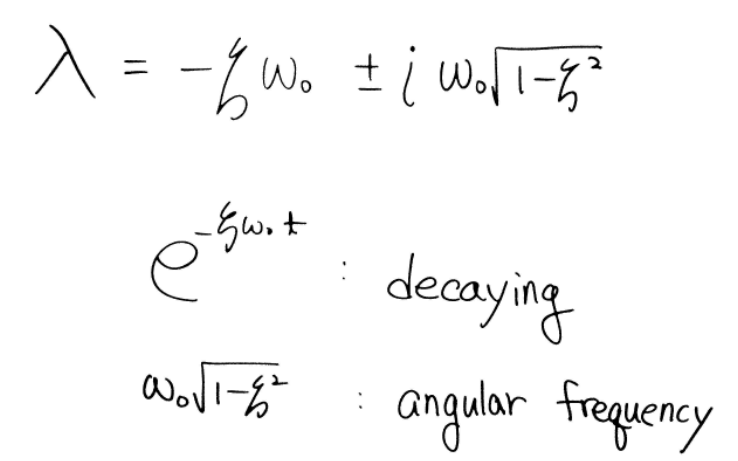 λ = -ζω₀ ± i ω₀√(1-ζ²)
e^(-ζω₀t) : decaying
ω₀√(1-ζ²) : angular frequency